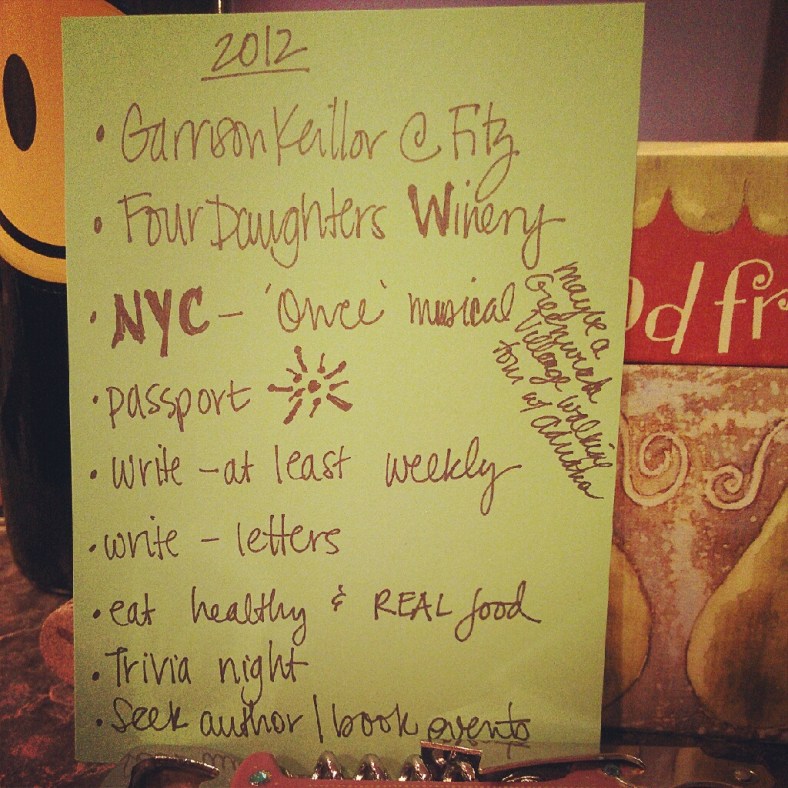 2012
• Garrison Keillor @ Fitz
• Four Daughters Winery
• NYC - 'Once' musical
maybe a
Greenwich
Village walking
tour w/
• passport
• write - at least weekly
• write - letters
• eat healthy & REAL food
• Trivia night
• Seek author / book events
od fr